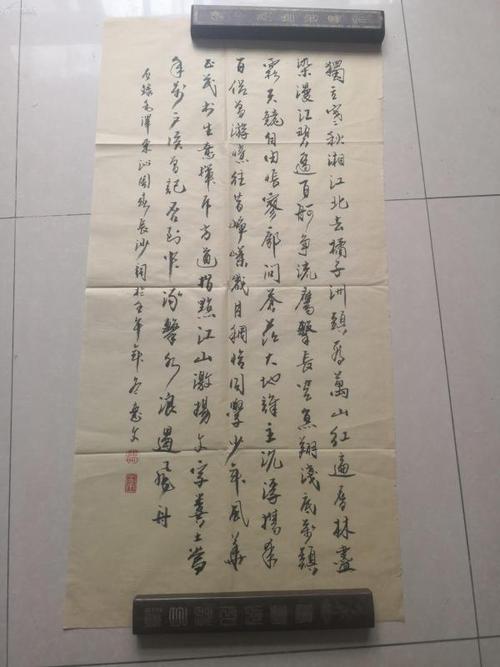 獨立寒秋湘江北去橘子洲頭看萬山紅遍層林盡
染漫江碧透百舸爭流鷹擊長空魚翔淺底萬類
霜天競自由悵寥廓問蒼茫大地誰主沉浮攜來
百侶曾游憶往昔崢嶸歲月稠恰同學少年風華
正茂書生意氣揮斥方遒指點江山激揚文字糞土當
年萬戶侯曾記否到中流擊水浪遏飛舟
毛澤東沁園春長沙詞於年